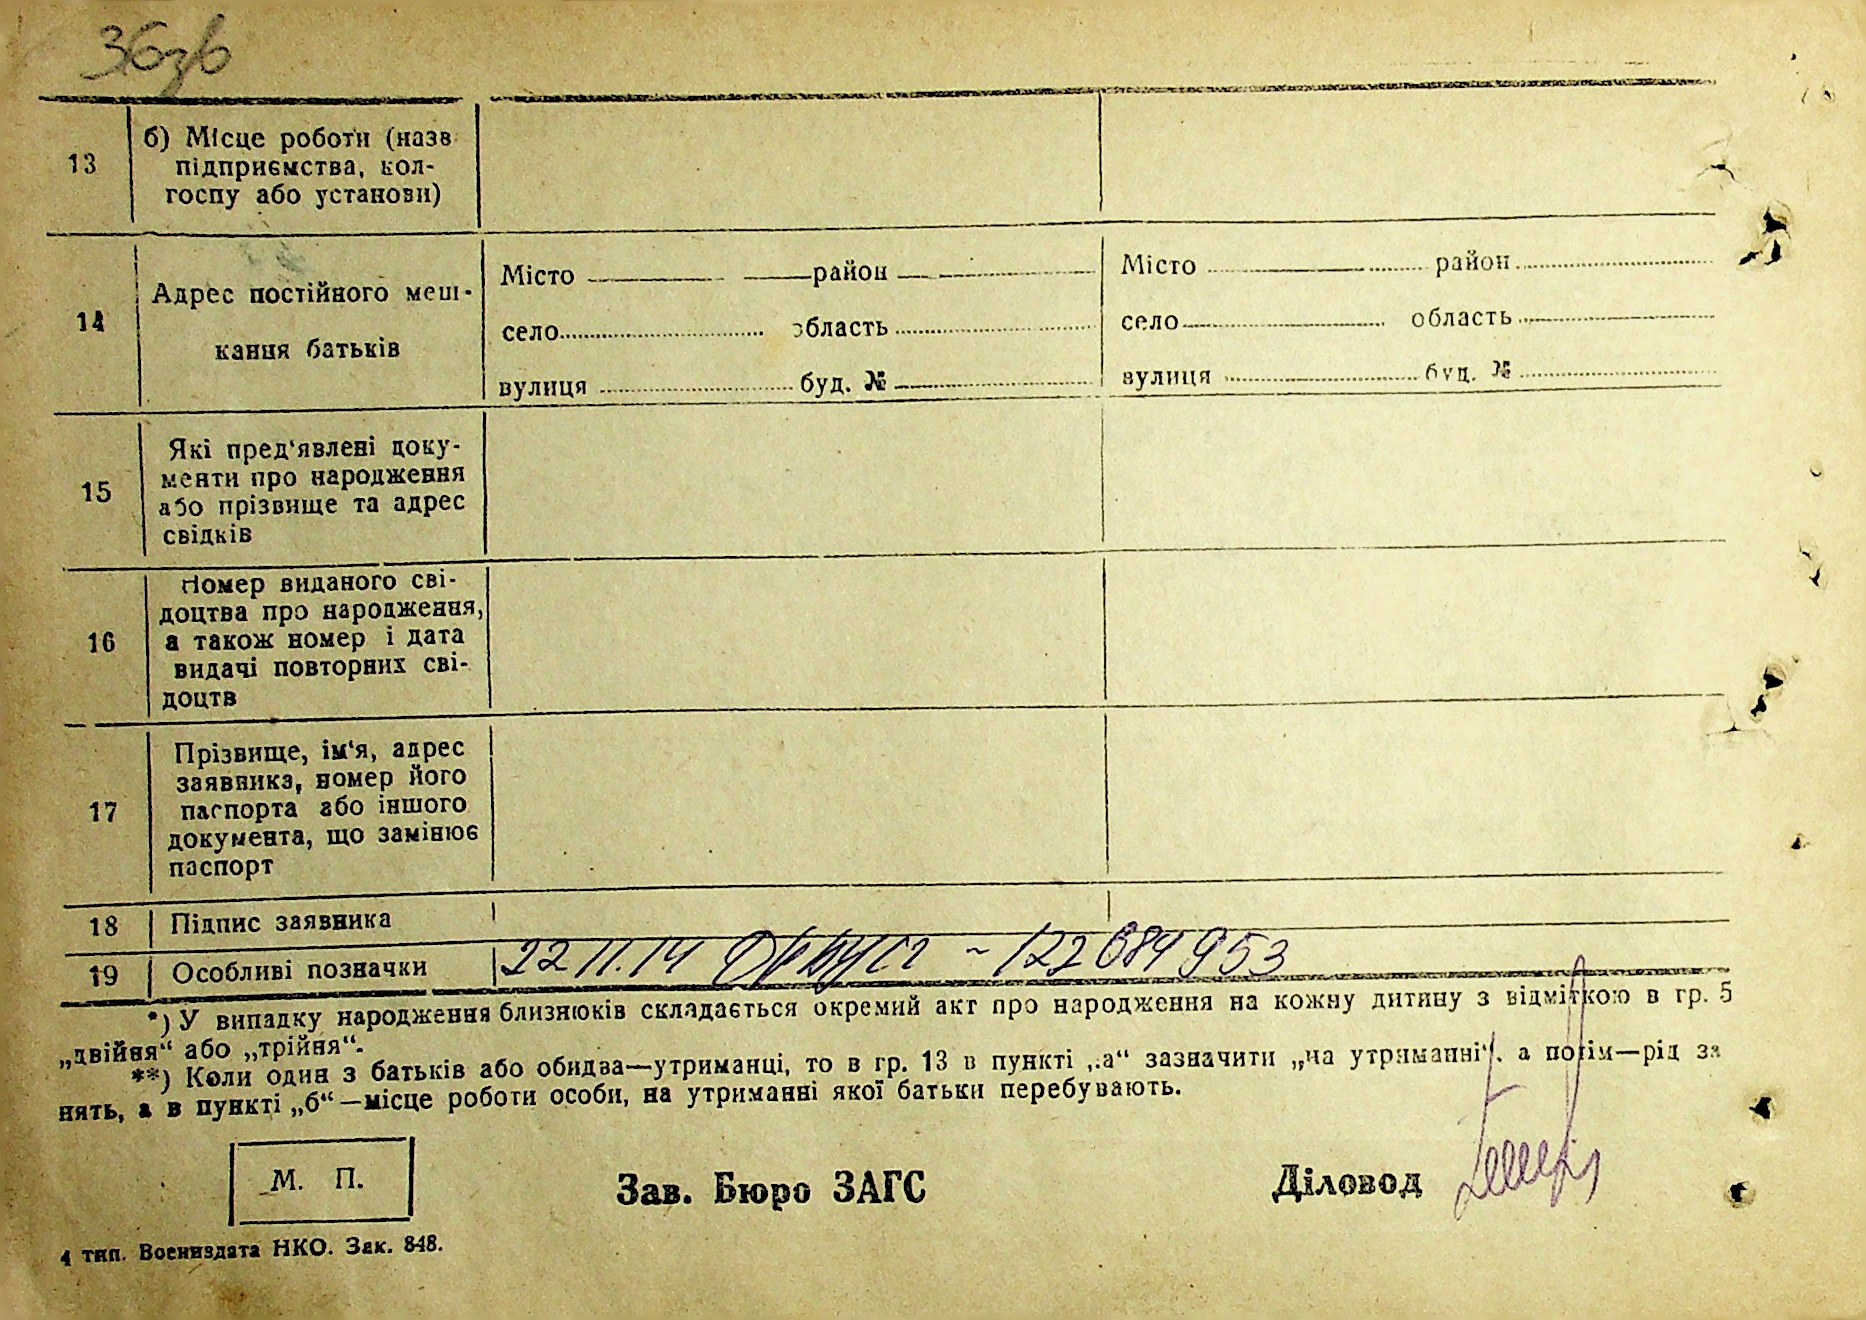 36зв
13 б) Місце роботи (назв
підприємства, кол-
госпу або установи)
14 Адрес постійного меш-
кання батьків
Місто район
село область
вулиця буд. №
Місто район
село область
вулиця буд. №
15 Які пред‘явлені доку-
менти про народження
або прізвище та адрес
свідків
16 Номер виданого сві-
доцтва про народження,
а також номер і дата
видачі повторних сві-
доцтв
17 Прізвище, ім‘я, адрес
заявника, номер його
паспорта або іншого
документа, що замінює
паспорт
18 Підпис заявника
19 Особливі позначки 22 11.14 122 684 953
*) У випадку народження близнюків складається окремий акт про народження на кожну дитину з відміткою в гр. 5
„двійня“ або „трійня“.
**) Коли один з батьків або обидва—утриманці, то в гр. 13 в пункті „а“ зазначити „на утриманні“, а потім—рід за
нять, а в пункті „б“—місце роботи особи, на утриманні якої батьки перебувають.
М. П.
Зав. Бюро ЗАГС
Діловод
4 тип. Воениздата НКО. Зак. 848.